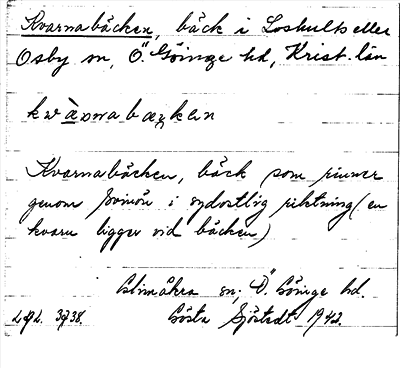 Kvarnabäcken, bäck i Loshults eller
Osby sn, Ö. Göinge hd, Krist. län
Kvarnabäcken, bäck som rinner
genom i sydostlig riktning (en
kvarn ligger vid bäcken)
Glimåkra sn, Ö. Göinge hd.
Gösta Sjöstedt 1942.